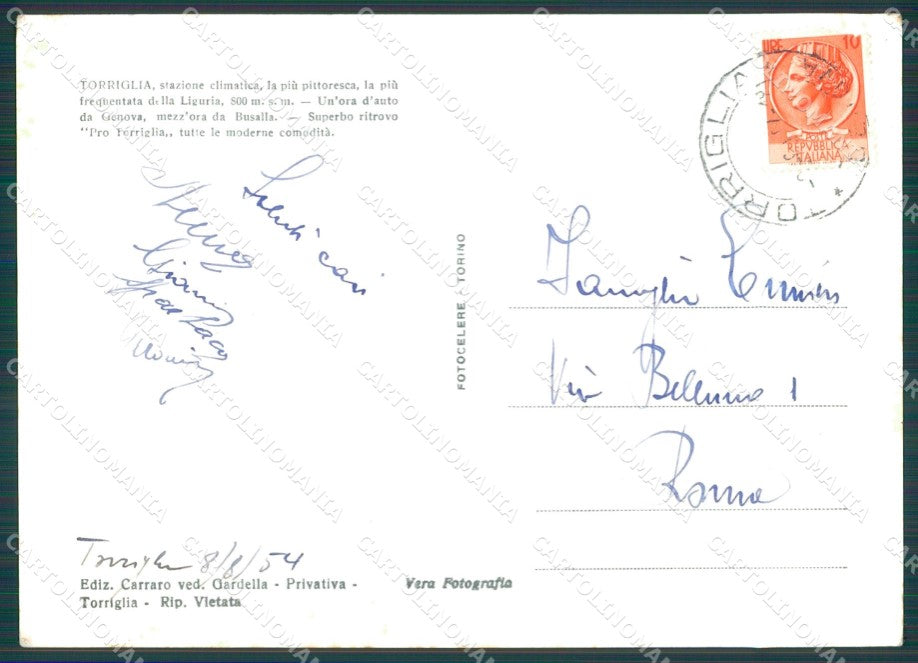 TORRIGLIA, stazione climatica, la più pittoresca, la più
frequentata della Liguria, 800 m. s. m. — Un'ora d'auto
da Genova, mezz'ora da Busalla. — Superbo ritrovo
"Pro Torriglia,, tutte le moderne comodità.
LIRE 10
POSTE
REPVBBLICA
ITALIANA
TORRIGLIA
Saluti cari
Gianni
FOTOCELERE - TORINO
Famiglia
Via Belluno 1
Roma
Torriglia 8/8/54
Ediz. Carraro ved. Gardella - Privativa -
Torriglia - Rip. Vietata
Vera Fotografia
CARTOLINOMANIA